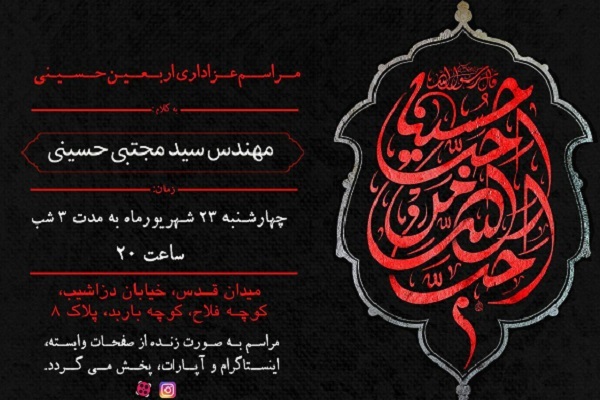 مراسم عزاداری اربعین حسینی
به کلام:
مهندس سید مجتبی حسینی
زمان:
چهارشنبه ۲۳ شهریورماه به مدت ۳ شب
ساعت ۲۰
میدان قدس، خیابان دزاشیب،
کوچه فلاح، کوچه باربد، پلاک ۸
مراسم به صورت زنده از صفحات وابسته،
اینستاگرام و آپارات، پخش می گردد.
قال رسول الله
احب الله من احب حسینا